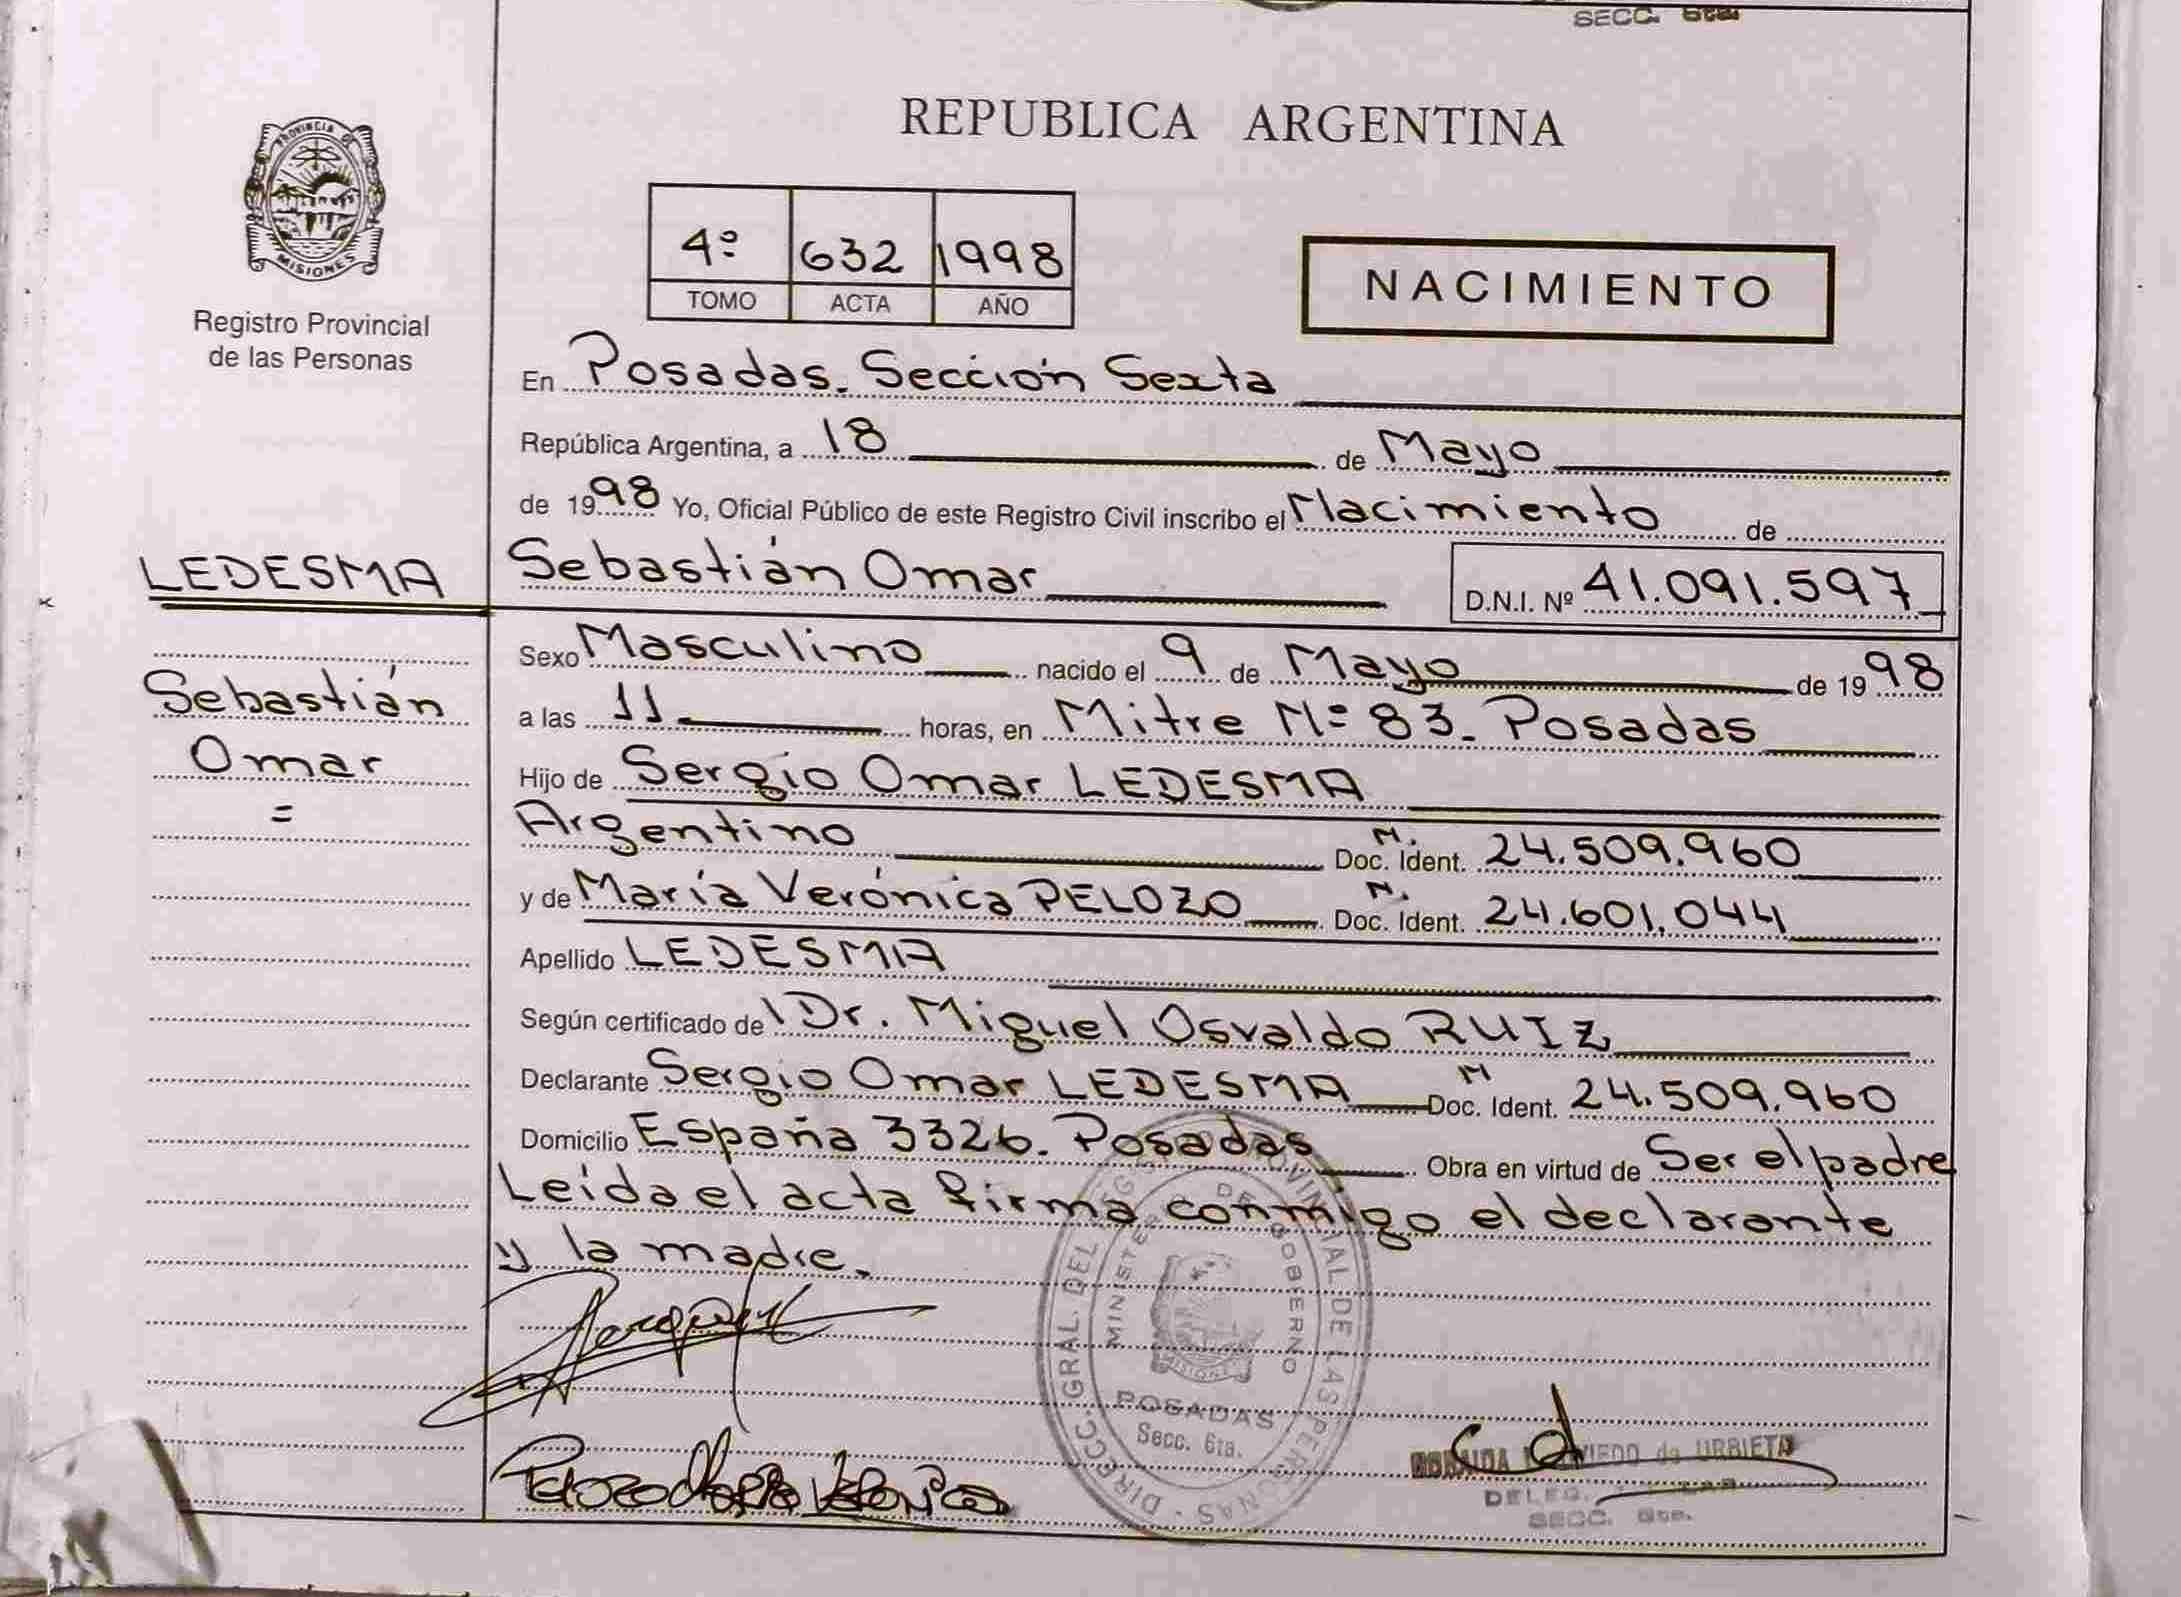 SECC. 6ta.
PROVINCIA DE
MISIONES
Registro Provincial
de las Personas
REPUBLICA ARGENTINA
4º 632 1998
TOMO ACTA AÑO
NACIMIENTO
En Posadas. Sección Sexta
República Argentina, a 18 de Mayo
de 1998 Yo, Oficial Público de este Registro Civil inscribo el Nacimiento de
LEDESMA Sebastián Omar D.N.I. Nº 41.091.597
Sexo Masculino nacido el 9 de Mayo de 1998
Sebastián
Omar
=
a las 11 horas, en Mitre Nº 83. Posadas
Hijo de Sergio Omar LEDESMA
Argentino N. Doc. Ident. 24.509.960
y de María Verónica PELOZO N. Doc. Ident. 24.601.044
Apellido LEDESMA
Según certificado de Dr. Miguel Osvaldo RUIZ
Declarante Sergio Omar LEDESMA N Doc. Ident. 24.509.960
Domicilio España 3326. Posadas Obra en virtud de Ser el padre
Leída el acta firma conmigo el declarante
y la madre.
DIRECC. GRAL. DEL REG. PROVINCIAL DE LAS PERSONAS
MINISTERIO DE GOBIERNO
MISIONES
POSADAS
Secc. 6ta.
Pelozo María Verónica
de URBIETA
DELEG.
SECC. 6ta.